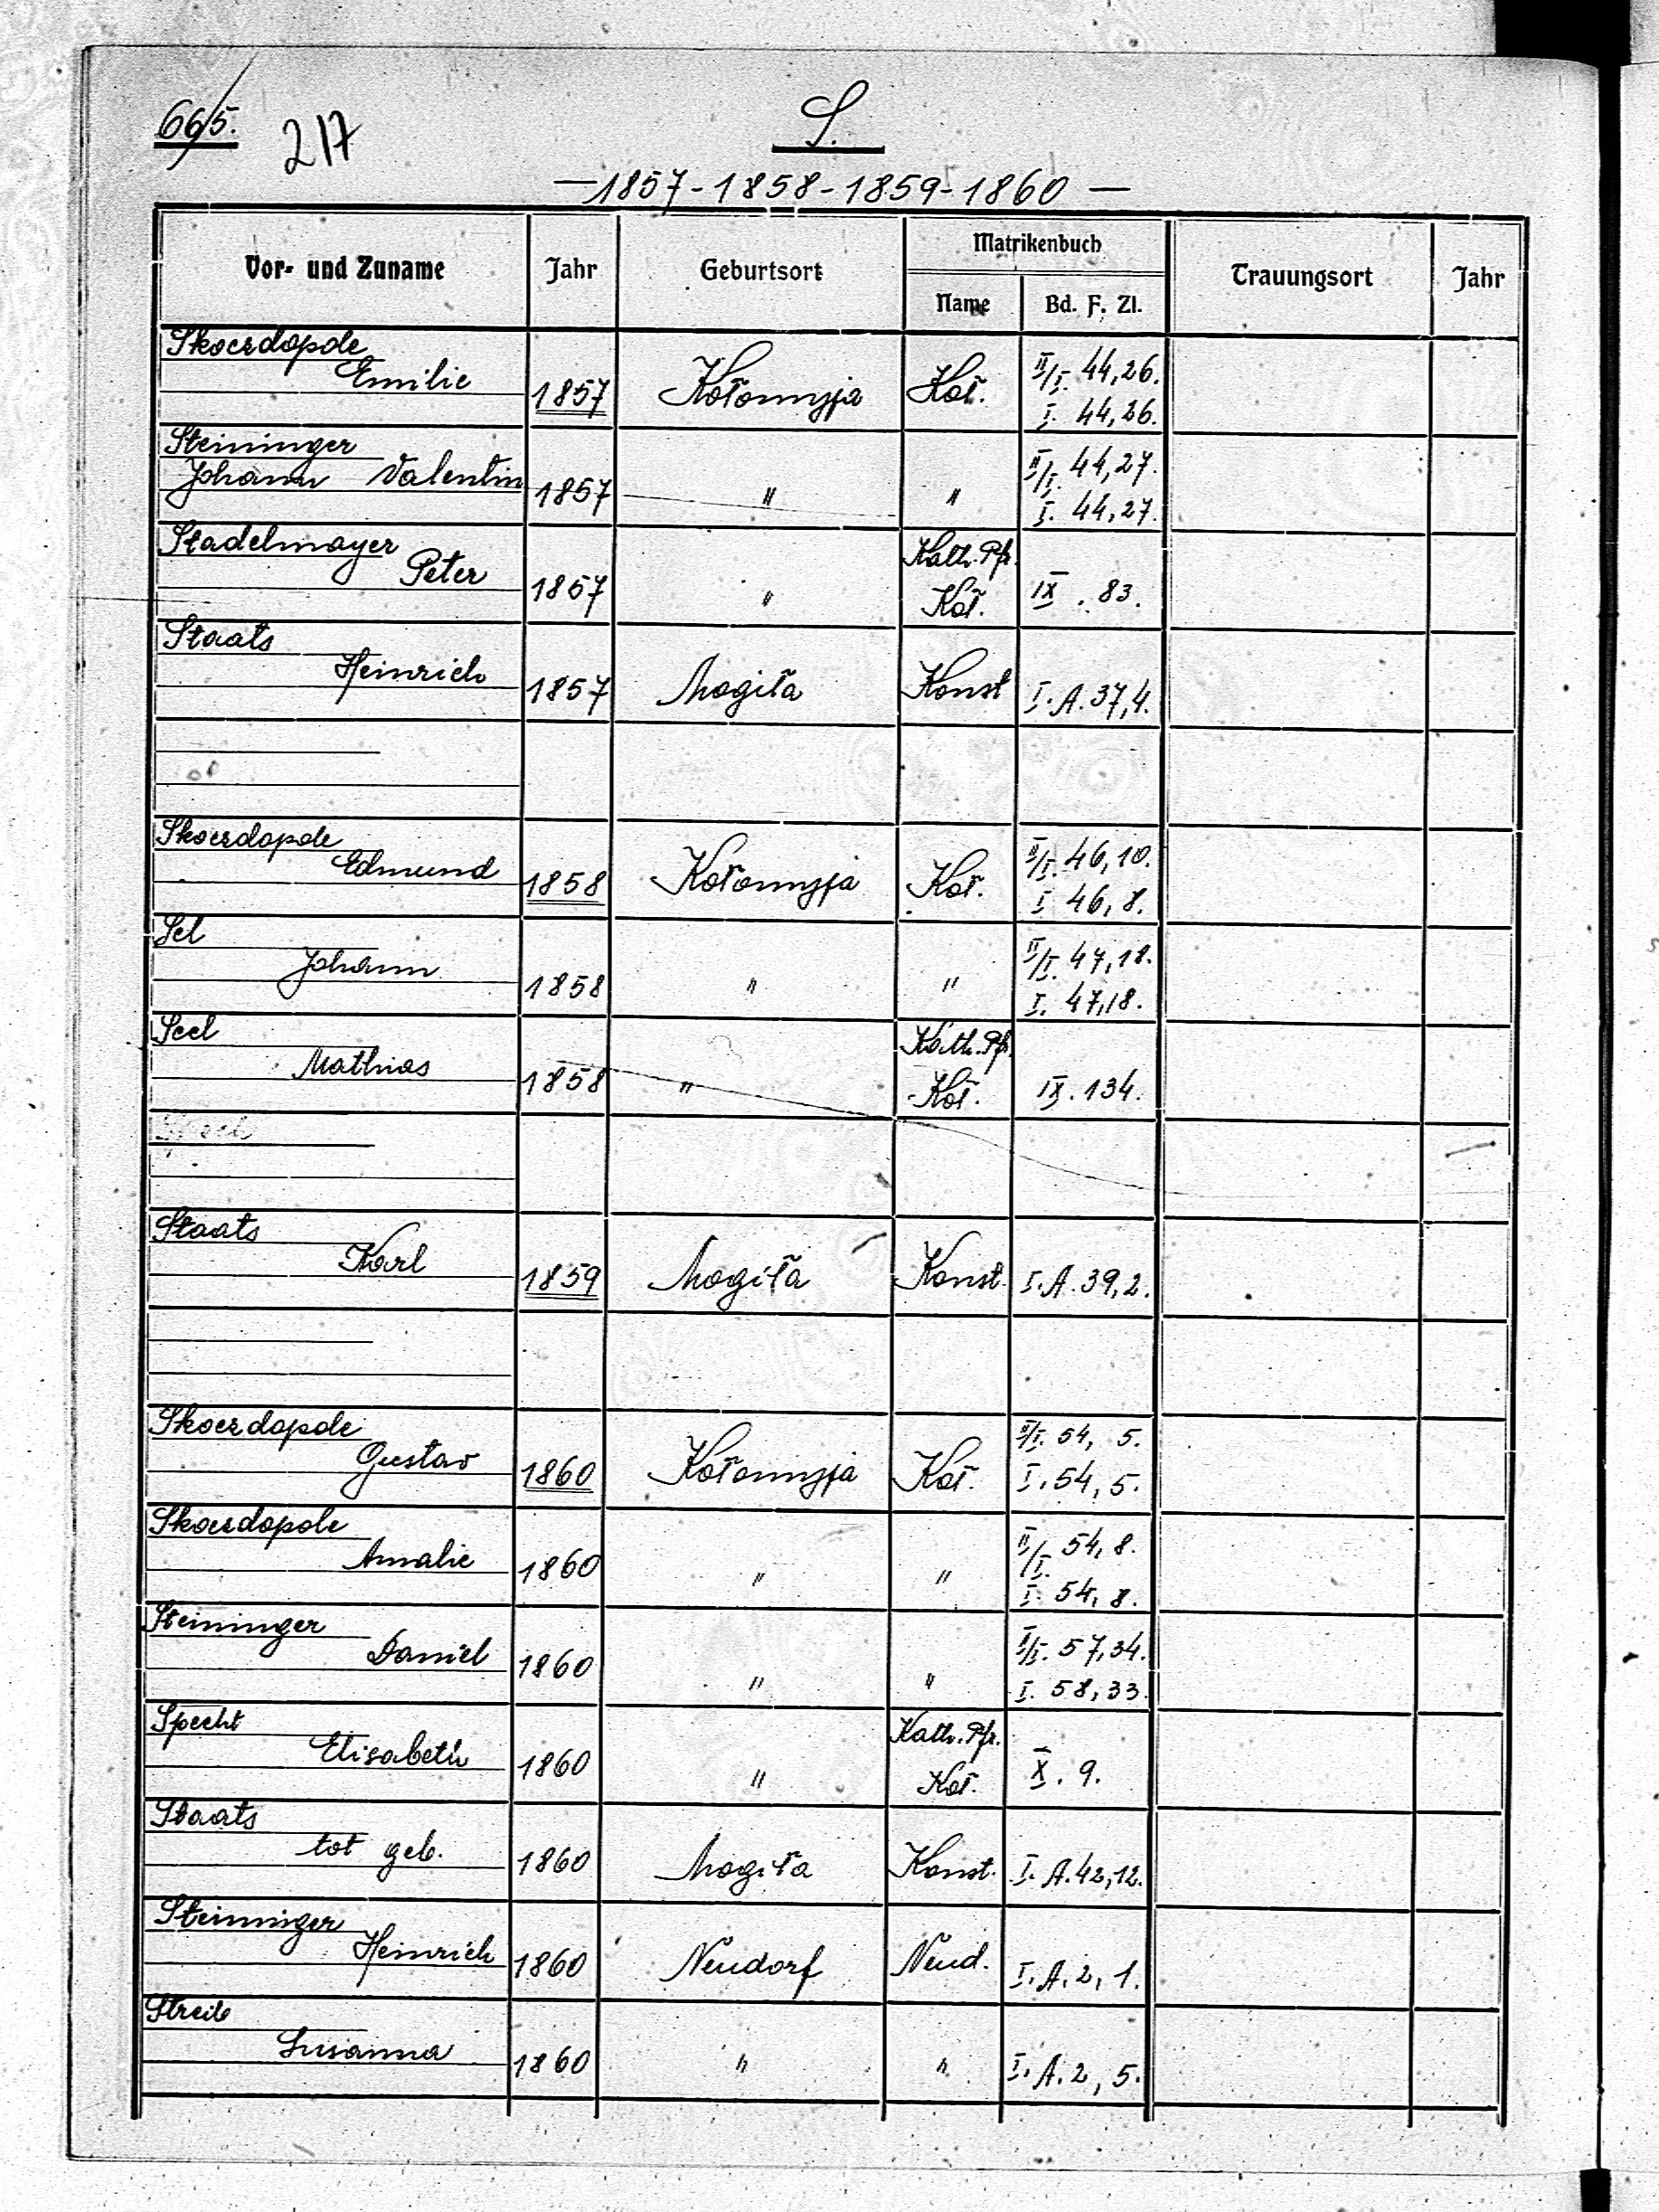 665. 217
S.
— 1857 - 1858 - 1859 - 1860 —
Vor- und Zuname Jahr Geburtsort Matrikenbuch Trauungsort Jahr
Name Bd. F. Zl.
Skoerdopole
Emilie 1857 Kołomyja Koł. II/I. 44,26.
I. 44,26.
Steininger
Johann Valentin 1857 " " II/I. 44,27.
I. 44,27.
Stadelmayer Kath. Pfr.
Peter 1857 " Koł. IX. 83.
Staats
Heinrich 1857 Mogiła Konst I. A. 37,4.
Skoerdopole
Edmund 1858 Kołomyja Koł. II/I. 46,10.
I 46, 8.
Sel
Johann 1858 " " II/I. 47,18.
I. 47,18.
Seel Kath. Pfr.
Mathias 1858 " Koł. IX. 134.
Staats
Karl 1859 Mogiła Konst. I. A. 39,2.
Skoerdopole II/I. 54, 5.
Gustav 1860 Kołomyja Koł. I. 54, 5.
Skoerdopole
Amalie 1860 " " II/I. 54, 8.
I. 54, 8.
Steininger
Daniel 1860 " " II/I. 57,34.
I. 58,33.
Specht Kath. Pfr.
Elisabeth 1860 " Koł. X. 9.
Staats
tot geb. 1860 Mogiła Konst. I. A. 42,12.
Steininger
Heinrich 1860 Neudorf Neud. I. A. 2, 1.
Streib
Susanna 1860 " " I. A. 2, 5.